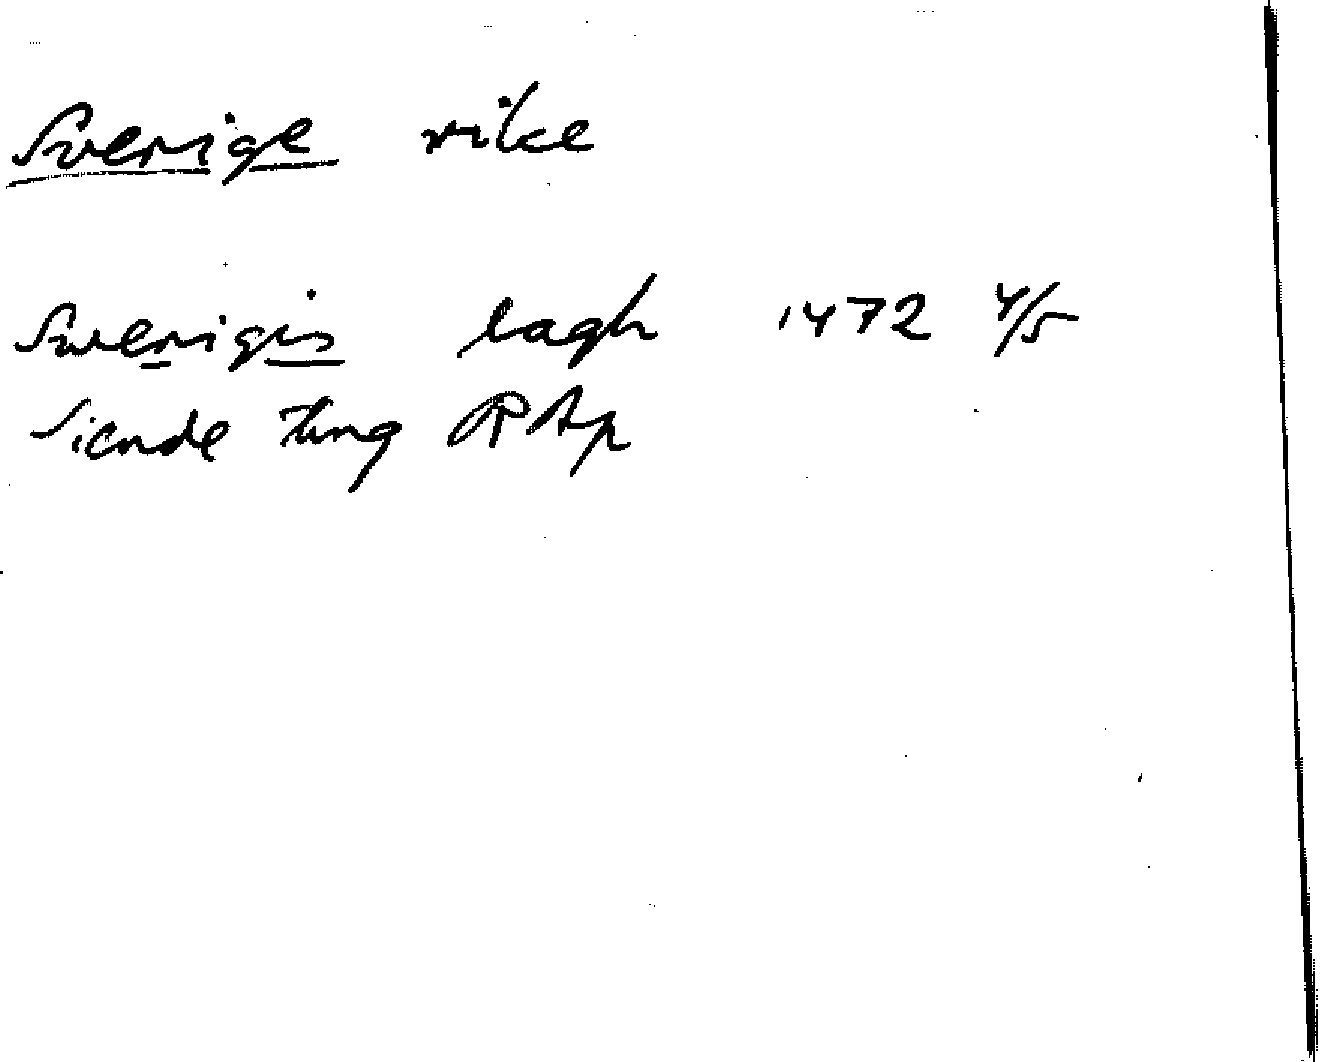 Sverige rike
Swerigis lagh 1472 4/5
Siende ting RAp